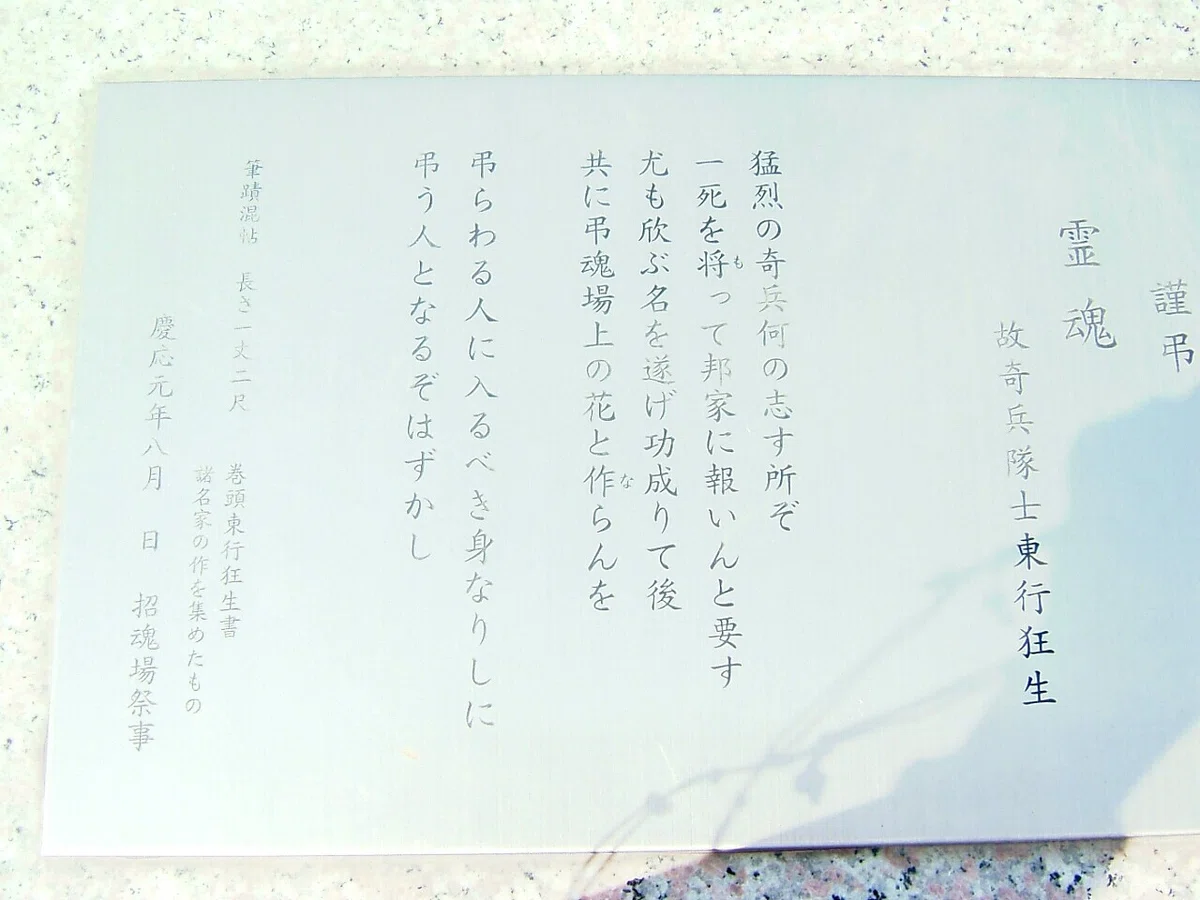 謹弔
霊魂
故奇兵隊士東行狂生
猛烈の奇兵何の志す所ぞ
一死を将って邦家に報いんと要す
も
尤も欣ぶ名を遂げ功成りて後
共に弔魂場上の花と作らんを
な
弔らわる人に入るべき身なりしに
弔う人となるぞはずかし
筆蹟混帖 長さ一丈二尺
巻頭東行狂生書
諸名家の作を集めたもの
慶応元年八月 日 招魂場祭事